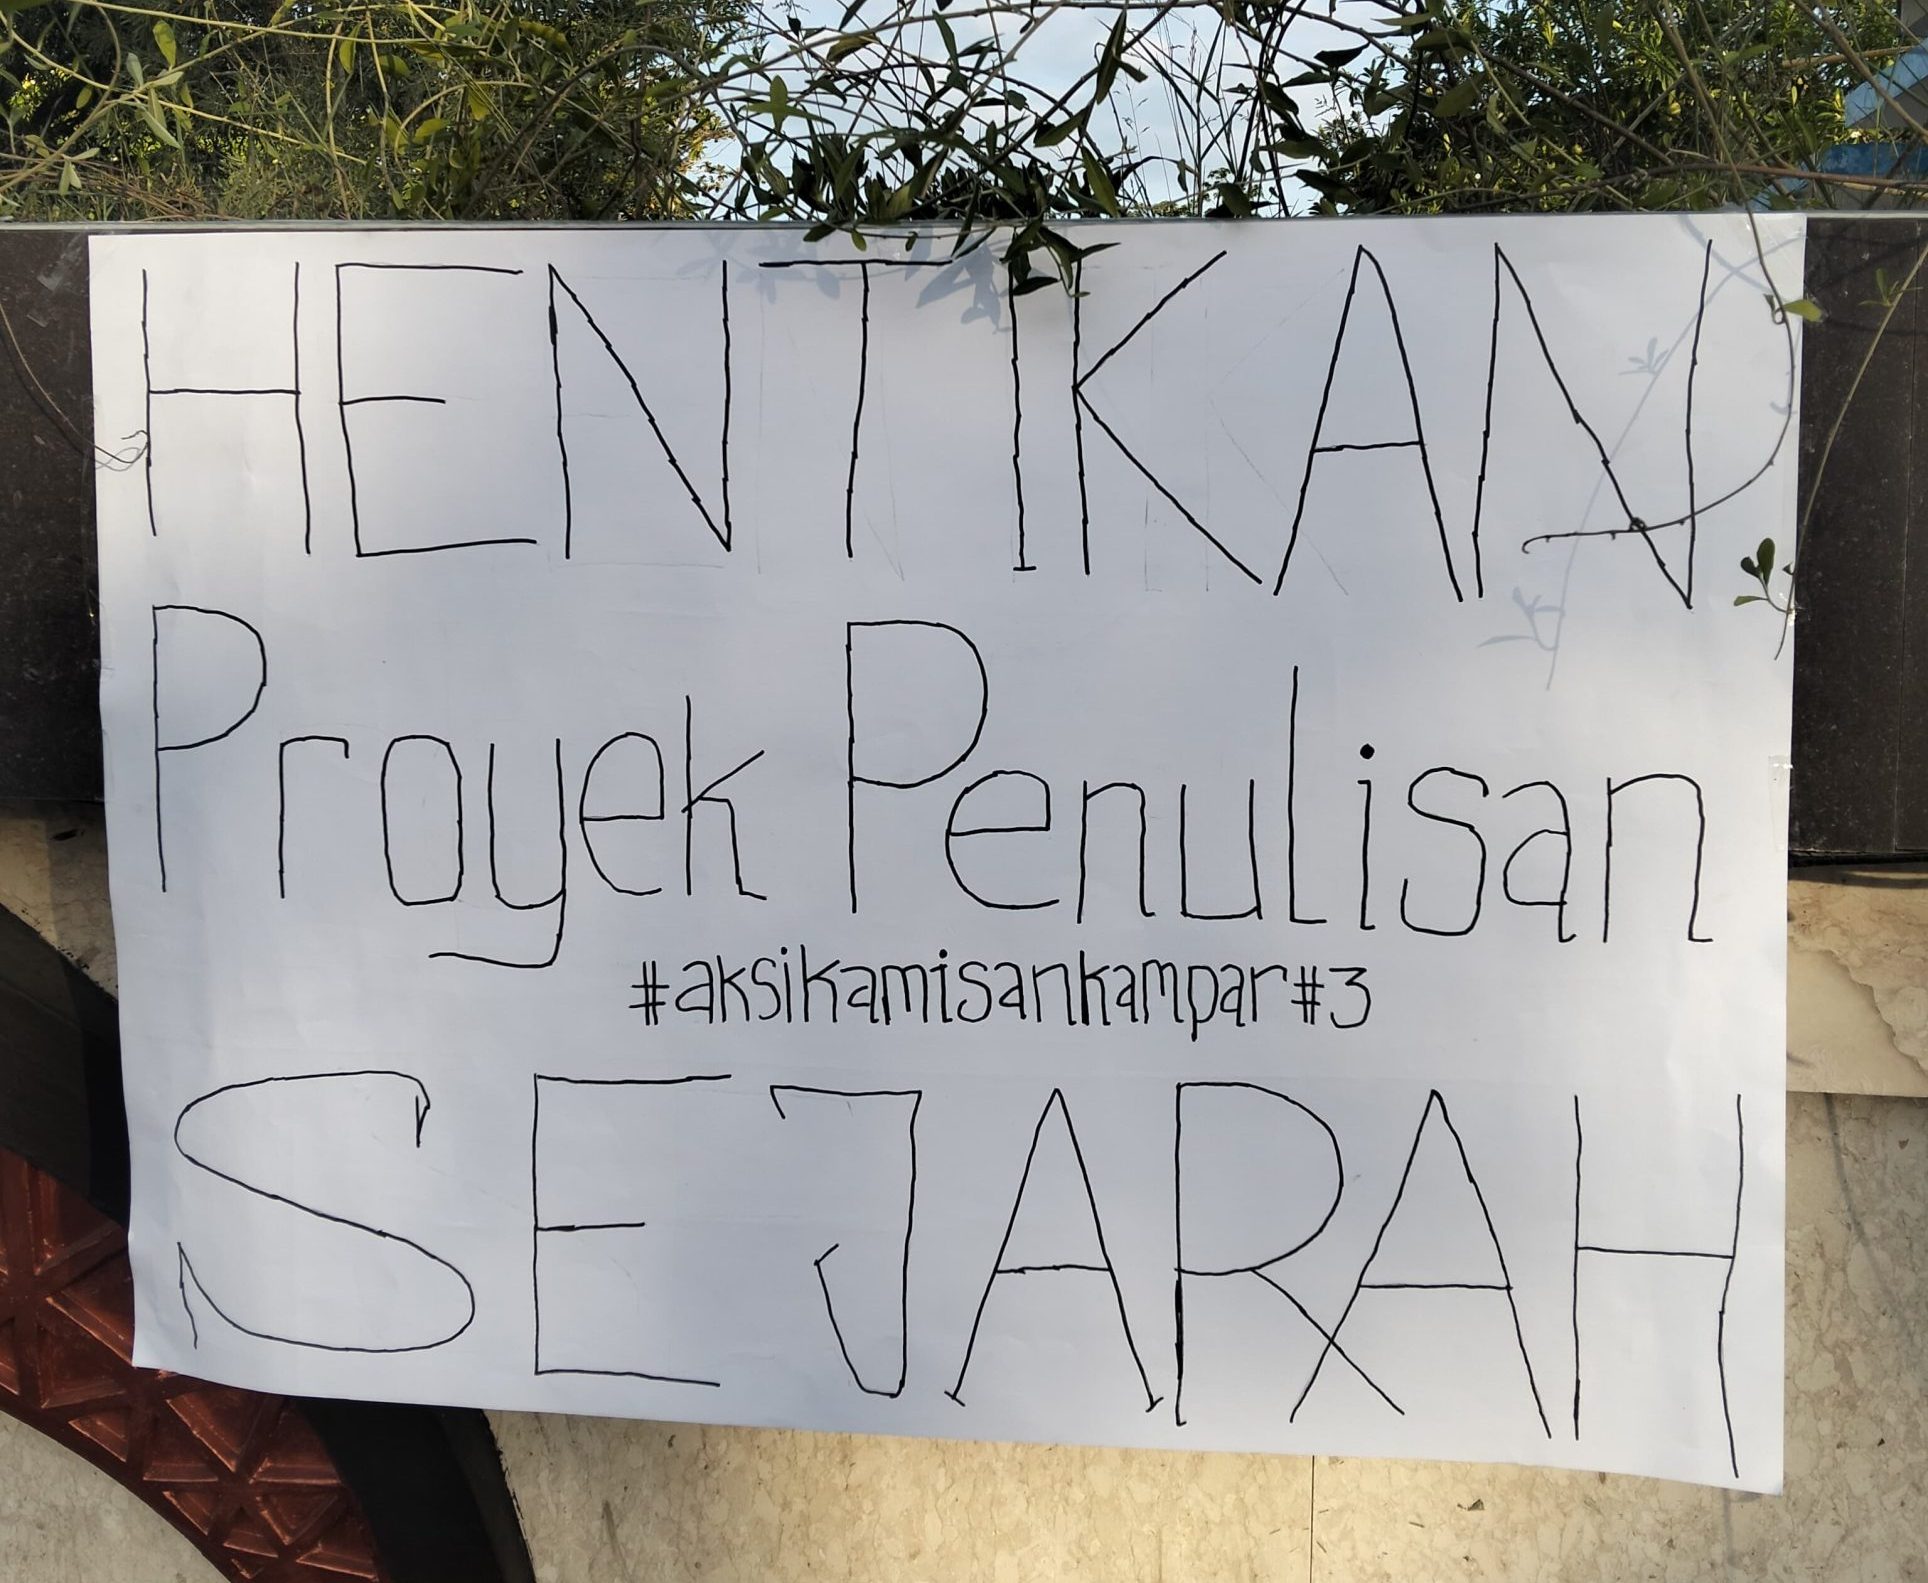 HENTIKAN
Proyek Penulisan
#aksikamisankampar#3
SEJARAH